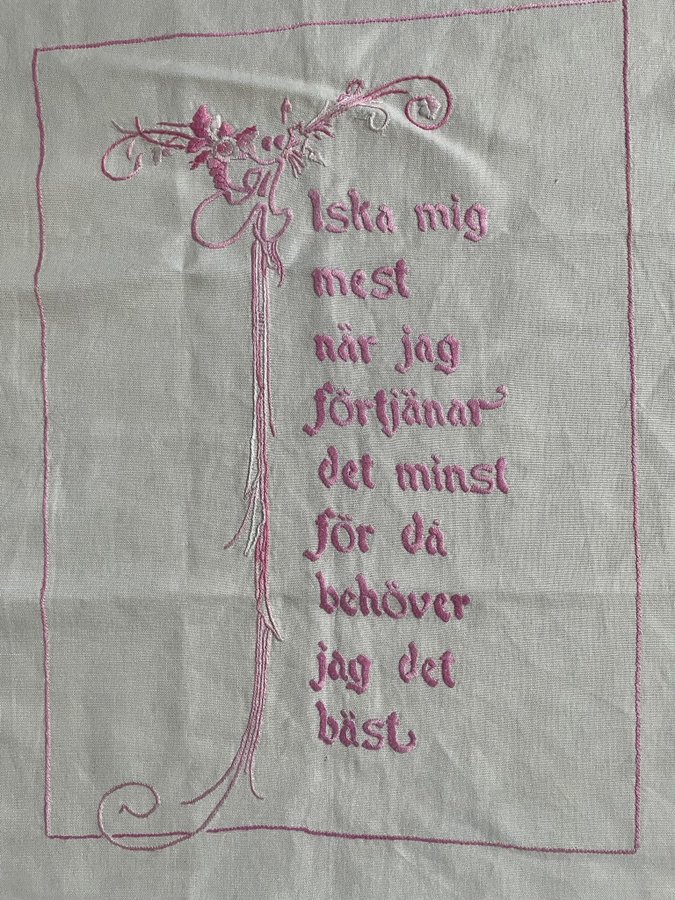 lska mig
mest
när jag
förtjänar
det minst
för då
behöver
jag det
bäst